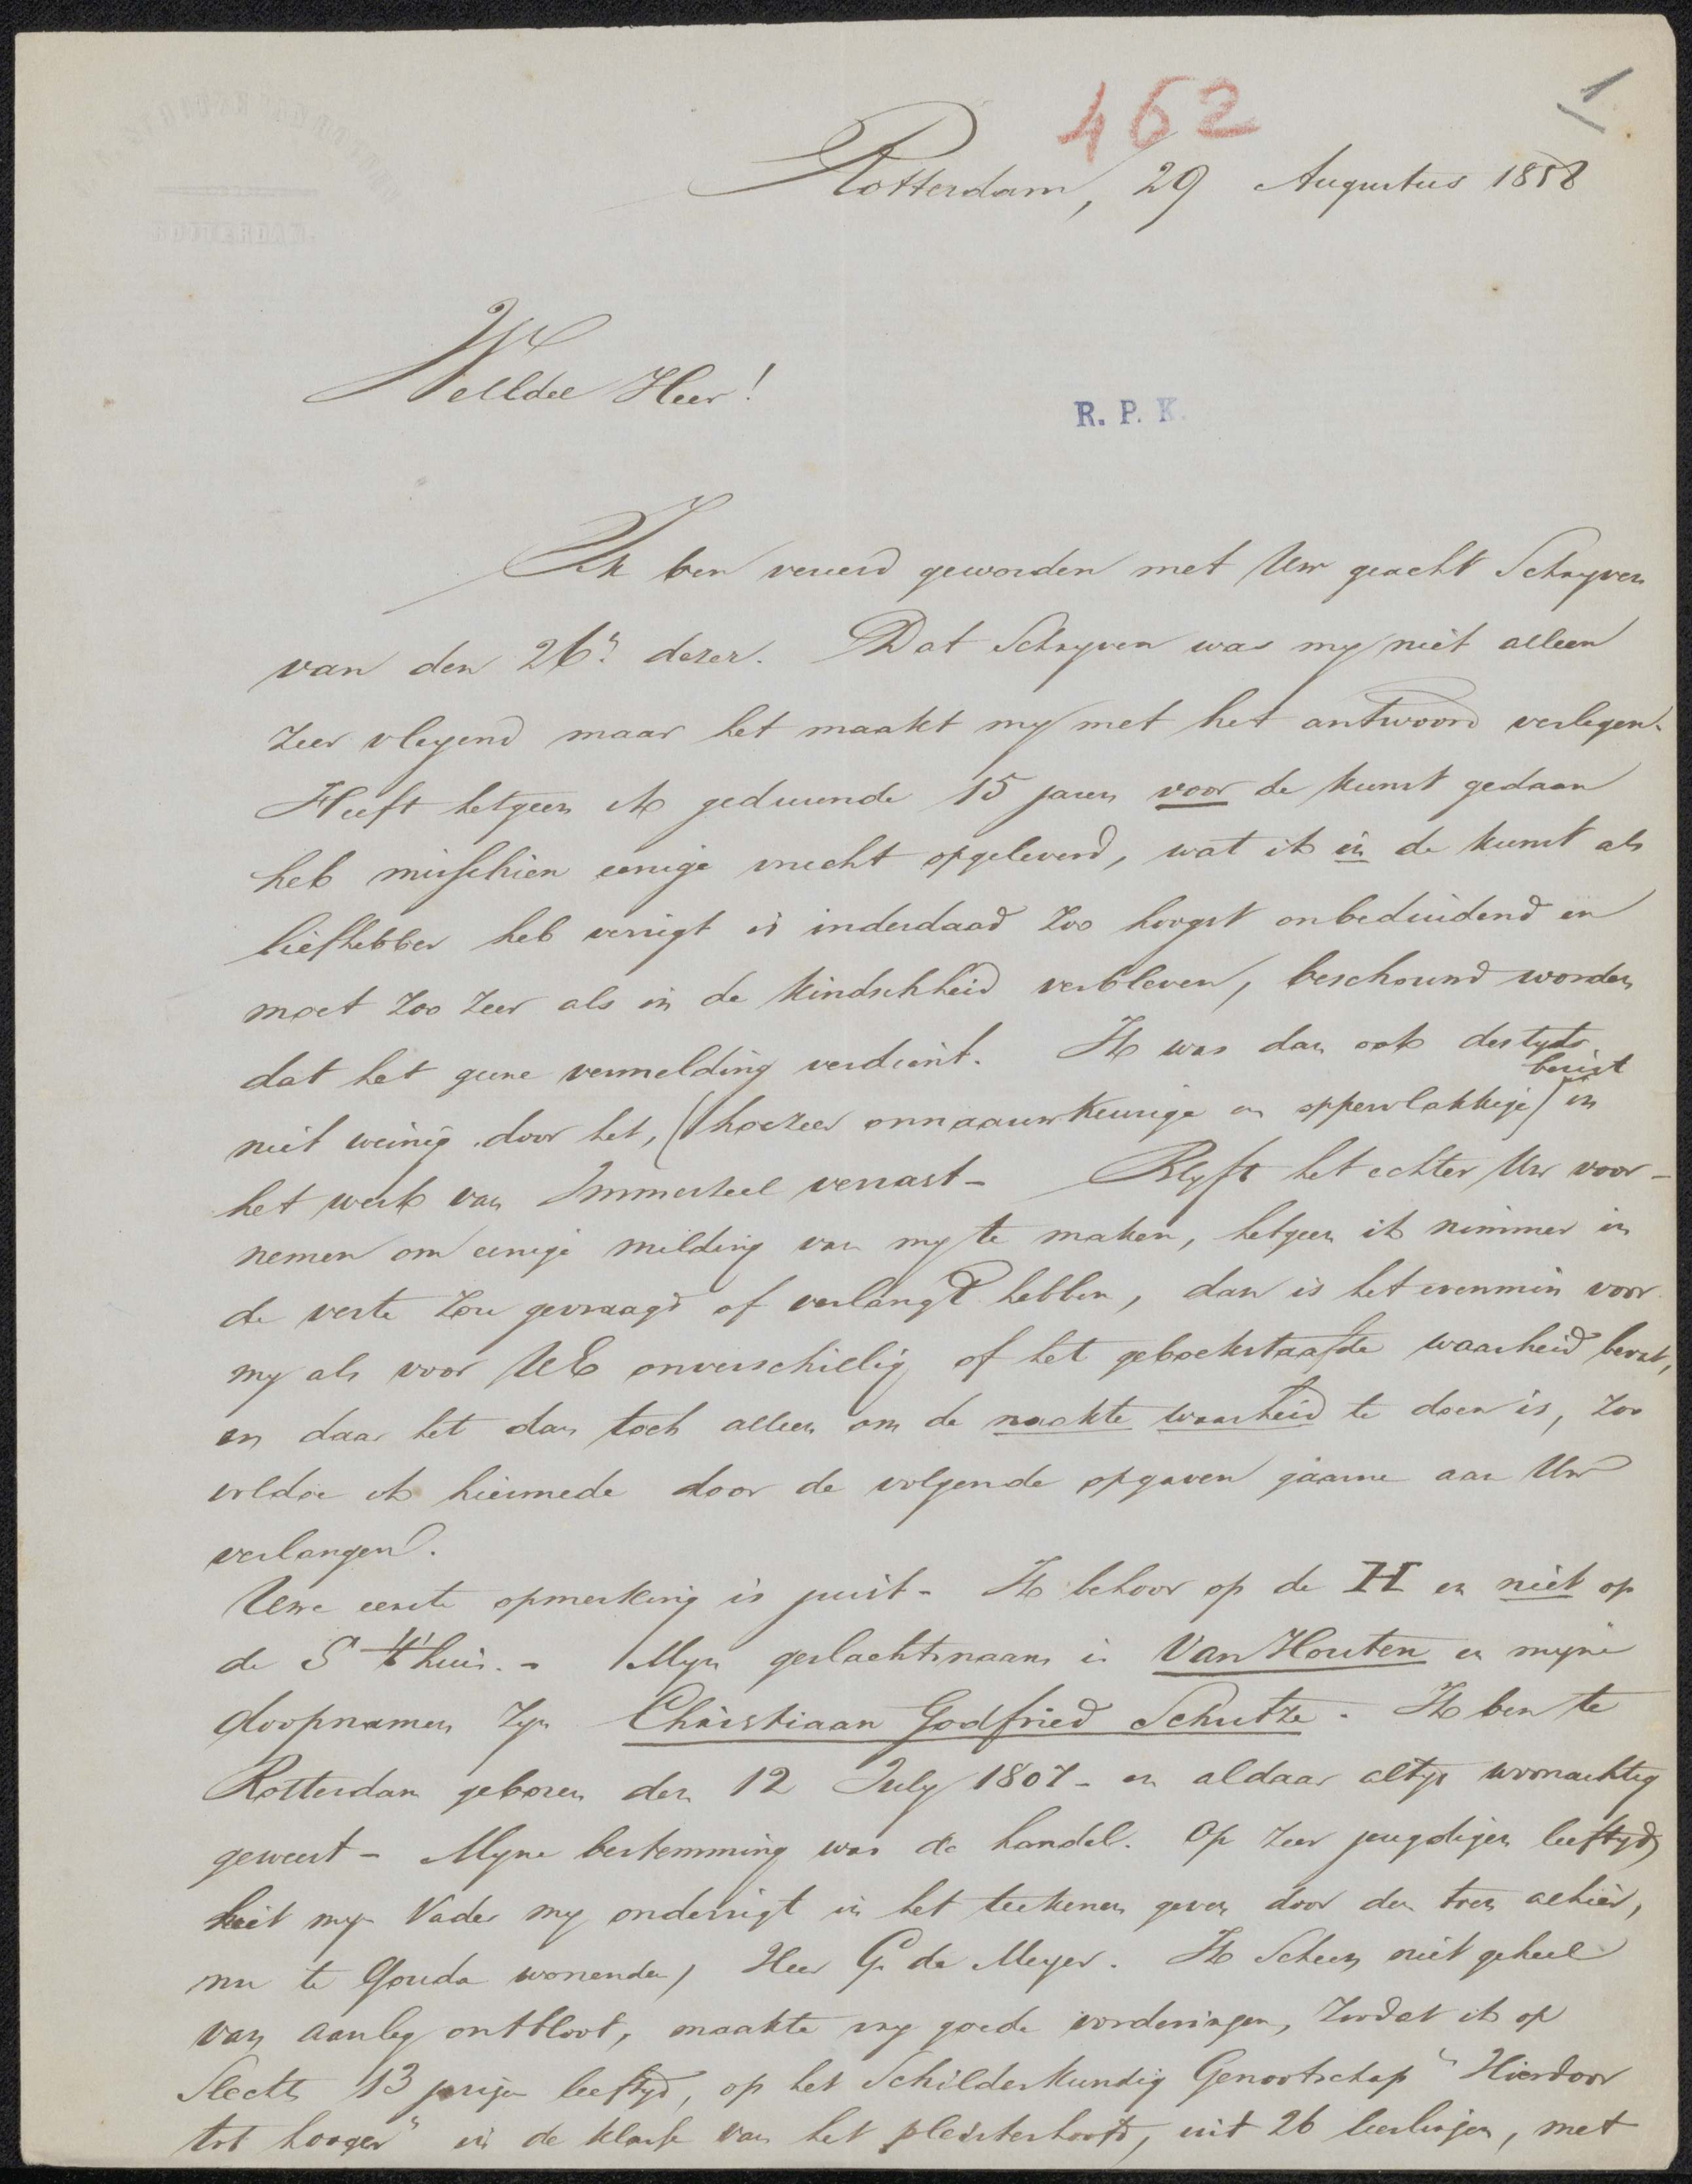 462
1
Rotterdam, 29 Augustus 1858
ROTTERDAM.
WelEdel Heer!
R. P. K.
Ik ben vereerd geworden met Uw geacht Schryven
van den 26n dezer. Dat Schryven was my niet alleen
zeer vleyend maar het maakt my met het antwoord verlegen.
Heeft hetgeen ik gedurende 15 jaren voor de kunst gedaan
heb misschien eenige vrucht opgeleverd, wat ik in de kunst als
liefhebber heb verrigt is inderdaad zoo hoogst onbeduidend en
moet zoo zeer als in de kindschheid verbleven, beschouwd worden
dat het geene vermelding verdient. Ik was dan ook destyds
niet weinig door het, (hoezeer onnaauwkeurige en oppervlakkige) berigt in
het werk van Immerzeel verrast - Blyft het echter Uw voor-
nemen om eenige melding van my te maken, hetgeen ik nimmer in
de verte zou gevraagd of verlangd hebben, dan is het evenmin voor
my als voor UE onverschillig of het geboekstaafde waarheid bevat,
en daar het dan toch alleen om de nackte waarheid te doen is, zoo
voldoe ik hiermede door de volgende opgaven gaarne aan Uw
verlangen.
Uwe eerste opmerking is juist - Ik behoor op de H en niet op
de S t'huis. - Myn geslachtsnaam is Van Houten en myne
doopnamen zyn Christiaan Godfried Schutze. Ik ben te
Rotterdam geboren den 12 July 1807 - en aldaar altyd woonachtig
geweest - Myne bestemming was de handel. Op zeer jeugdigen leeftyd
liet myn Vader my onderrigt in het teekenen geven door den toen alhier,
nu te Gouda wonenden, Heer G. de Meyer. Ik scheen niet geheel
van aanleg ontbloot, maakte vry goede vorderingen, zoodat ik op
slechts 13 jarigen leeftyd, op het Schilderkundig Genootschap "Hierdoor
tot hooger" in de klasse van het pleisterhoofd, uit 26 leerlingen, met